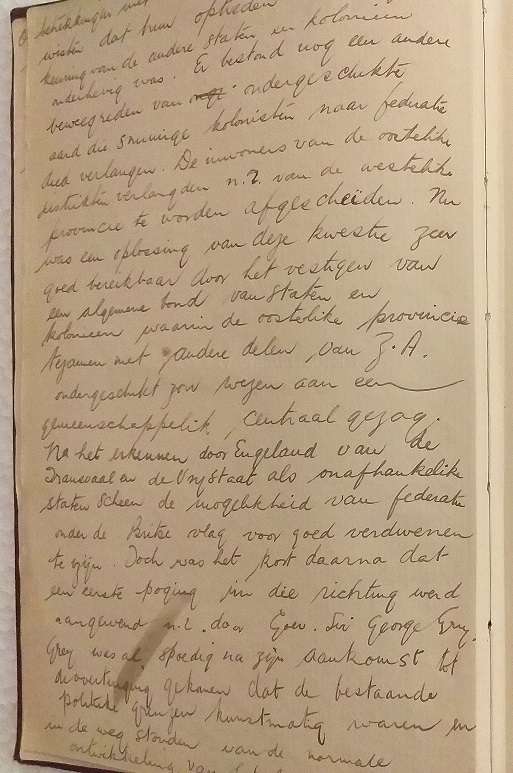 schikkingen met
wisten dat hun optreden
keuring van de andere staten en kolonieën
onderhevig was. Er bestond nog een andere
beweegreden van ondergeschikte
aard die sommige kolonisten naar federatie
deed verlangen. De inwoners van de oostelike
distrikten verlangden n.l. van de westelike
provincie te worden afgescheiden. Nu
was een oplossing van deze kwestie zeer
goed bereikbaar door het vestigen van
een algemene bond van staten en
kolonieen waarin de oostelike provincie
tezamen met andere delen van Z.A.
ondergeschikt zou wezen aan een
gemeenschappelik, centraal gezag.
Na het erkennen door Engeland van de
Transvaal en de Vrystaat als onafhankelike
staten scheen de mogelikheid van federatie
onder de Britse vlag voor goed verdwenen
te zijn. Doch was het kort daarna dat
een eerste poging in die richting werd
aangewend n.l. door Goev. Sir George Grey.
Grey was al spoedig na zijn aankomst tot
de overtuiging gekomen dat de bestaande
politieke grenzen kunstmatig waren en
in de weg stonden van de normale
ontwikkeling van